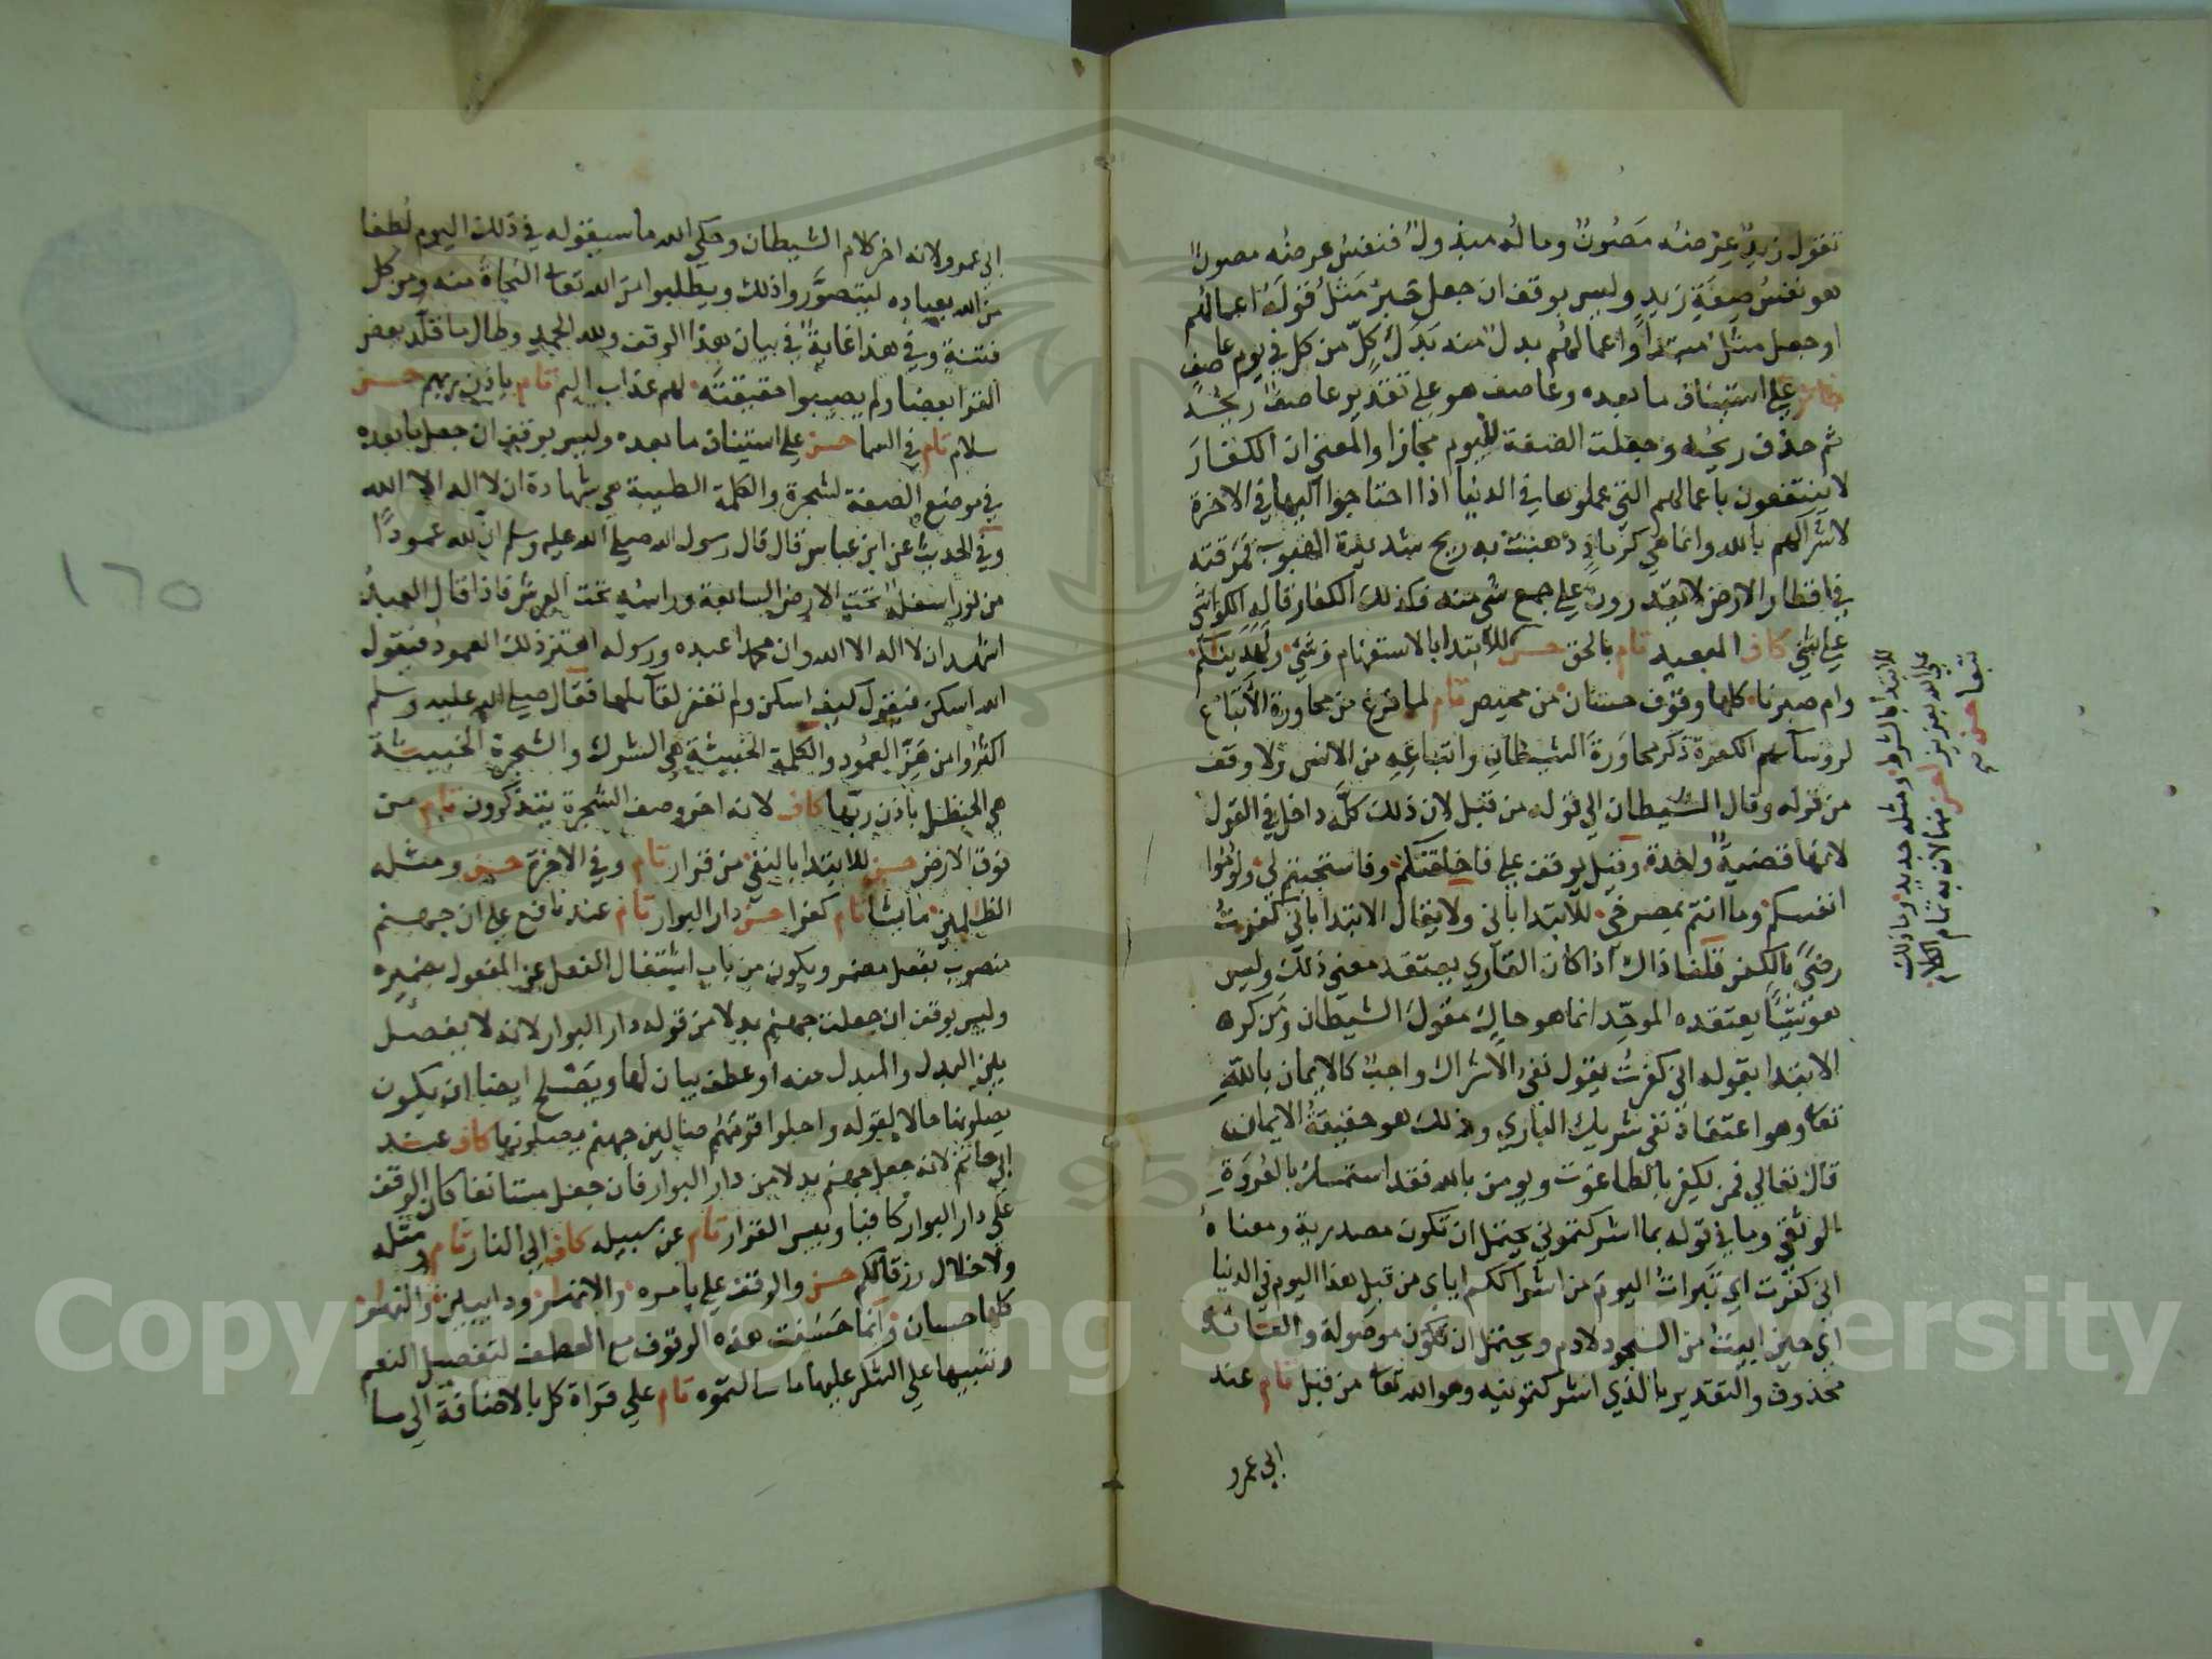 تقول زيد عرضه مصون وماله مبذول فنفس عرضه مصون
هو نفس صفة زيد وليس بوقف ان جعل خبر مثل قوله اعمالهم
او جعل مثل مبتدا واعمالهم بدل منه بدل كل من كل في يوم عاصف
جائز على استيناف ما بعده وعاصف هو على تقدير عاصف ريحه
ثم حذف ريحه وجعلت الصفة لليوم مجازا والمعنى ان الكفار
لا ينتفعون باعمالهم التي عملوها في الدنيا اذا احتاجوا اليها في الاخرة
لاشراكهم بالله وانما هي كرماد ذهبت به ريح شديدة الهبوب فمزقته
في اقطار الارض لا يقدرون على جمع شي منه فكذلك الكفار قاله الكواشي
على شي كاف البعيد تام بالحق حسن للابتدا بالاستفهام من شي ولهديناكم
وام صبرنا كلها وقوف حسان من محيص تام لما فرغ من محاورة الاتباع
لروسائهم الكفرة ذكر محاورة الشيطان واتباعه من الانس ولا وقف
من قوله وقال الشيطان الى قوله من قبل لان ذلك كله داخل في القول
لانها قضية واحدة وقيل يوقف على فاخلفتكم وفاستجبتم لي ولوموا
انفسكم وما انتم بمصرخي للابتدا باني ولا يقال الابتدا باني كفرت
رضى بالكفر قلنا ذاك اذا كان القاري يعتقد معنى ذلك وليس
هو شيا يعتقده الموحد انما هو حاك مقول الشيطان ومن كره
الابتدا بقوله اني كفرت يقول نفي الاشراك واجب كالايمان بالله
تعالى وهو اعتقاد نفي شريك الباري وذلك هو حقيقة الايمان
قال تعالى فمن يكفر بالطاغوت ويومن بالله فقد استمسك بالعروة
الوثقى وما في قوله بما اشركتموني يحتمل ان تكون مصدرية ومعناه
اني كفرت اي تبرات اليوم من اشراككم اياي من قبل هذا اليوم في الدنيا
اي حين ابيت من السجود لادم ويحتمل ان تكون موصولة والعائد
محذوف والتقدير بالذي اشركتمونيه وهو الله تعالى من قبل تام عند
ابي عمرو
للابتدا بالشرط ومثله جديد وما ذلك
على الله بعزيز احسن منهما لانه به تمام الكلام
تبعا حسن
ابي عمرو ولانه اخر كلام الشيطان وحكى الله ما سيقوله في ذلك اليوم لطفا
من الله بعباده ليتصوروا ذلك ويطلبوا من الله تعالى النجاة منه ومن كل
فتنة وفي هذا غاية في بيان هذا الوقف ولله الحمد وطال ما قلد بعض
القوا بعضا ولم يصيبوا حقيقته لهم عذاب اليم تام باذن ربهم حسن
سلام تام في السما حسن على استيناف ما بعده وليس بوقف ان جعل ما بعده
في موضع الصفة لشجرة والكلمة الطيبة هي شهادة ان لا اله الا الله
وفي الحديث عن ابن عباس قال قال رسول الله صلى الله عليه وسلم ان لله عمودا
من نور اسفله تحت الارض السابعة وراسه تحت العرش فاذا قال العبد
اشهد ان لا اله الا الله وان محمدا عبده ورسوله اهتز ذلك العمود فيقول
الله اسكن فيقول كيف اسكن ولم تغفر لقائلها فقال صلى الله عليه وسلم
اكثروا من هز العمود والكلمة الخبيثة هي الشرك والشجرة الخبيثة
هي الحنظل باذن ربها كاف لانه اخر وصف الشجرة يتذكرون تام من
فوق الارض حسن للابتدا بالنفي من قرار تام وفي الاخرة حسن ومثله
الظالمين ما يشا تام كفرا حسن دار البوار تام عند نافع على ان جهنم
منصوب بفعل مضمر ويكون من باب اشتغال الفعل عن المفعول بضميره
وليس بوقف ان جعلت جهنم بدلا من قوله دار البوار لانه لا يفصل
بين البدل والمبدل منه او عطف بيان لها ويصلح ايضا ان يكون
يصلونها حالا لقوله واحلوا قومهم صالين جهنم يصلونها كاف عند
ابي حاتم لانه جعل جهنم بدلا من دار البوار فان جعل مستانفا كان الوقف
على دار البوار كافيا وبيس القرار تام عن سبيله كاف الى النار تام ومثله
ولا خلال رزقا لكم حسن والوقف على بامره والانهار ودايبين والنهار
كلها حسان وانما حسنت هذه الوقوف مع العطف لتفصيل النعم
وتنبيها على الشكر عليها ما سالتموه تام على قراة كل بالاضافة الى ما
١٦٥
Copyright © King Saud University
1957